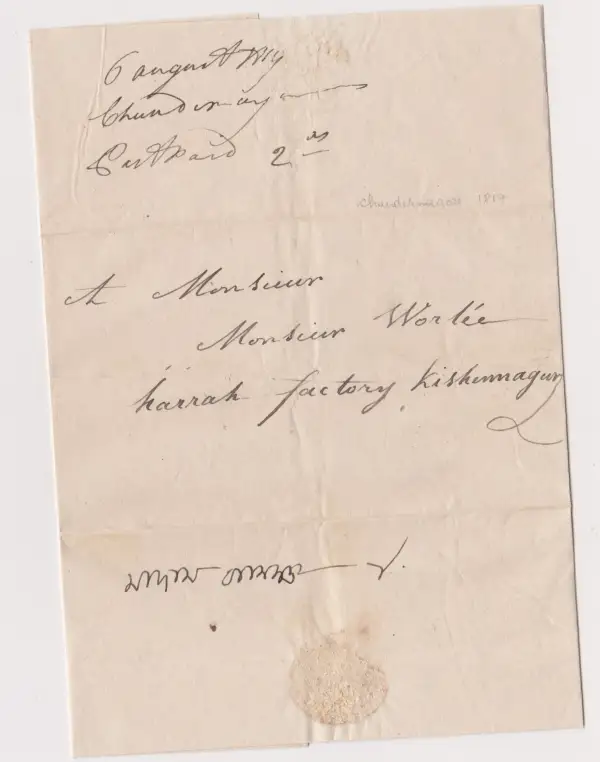 6 august 1819
Chundernagore
Post Paid 2 as
chundernagore 1819
A Monsieur
Monsieur Worlée
harrah factory Kishennagur